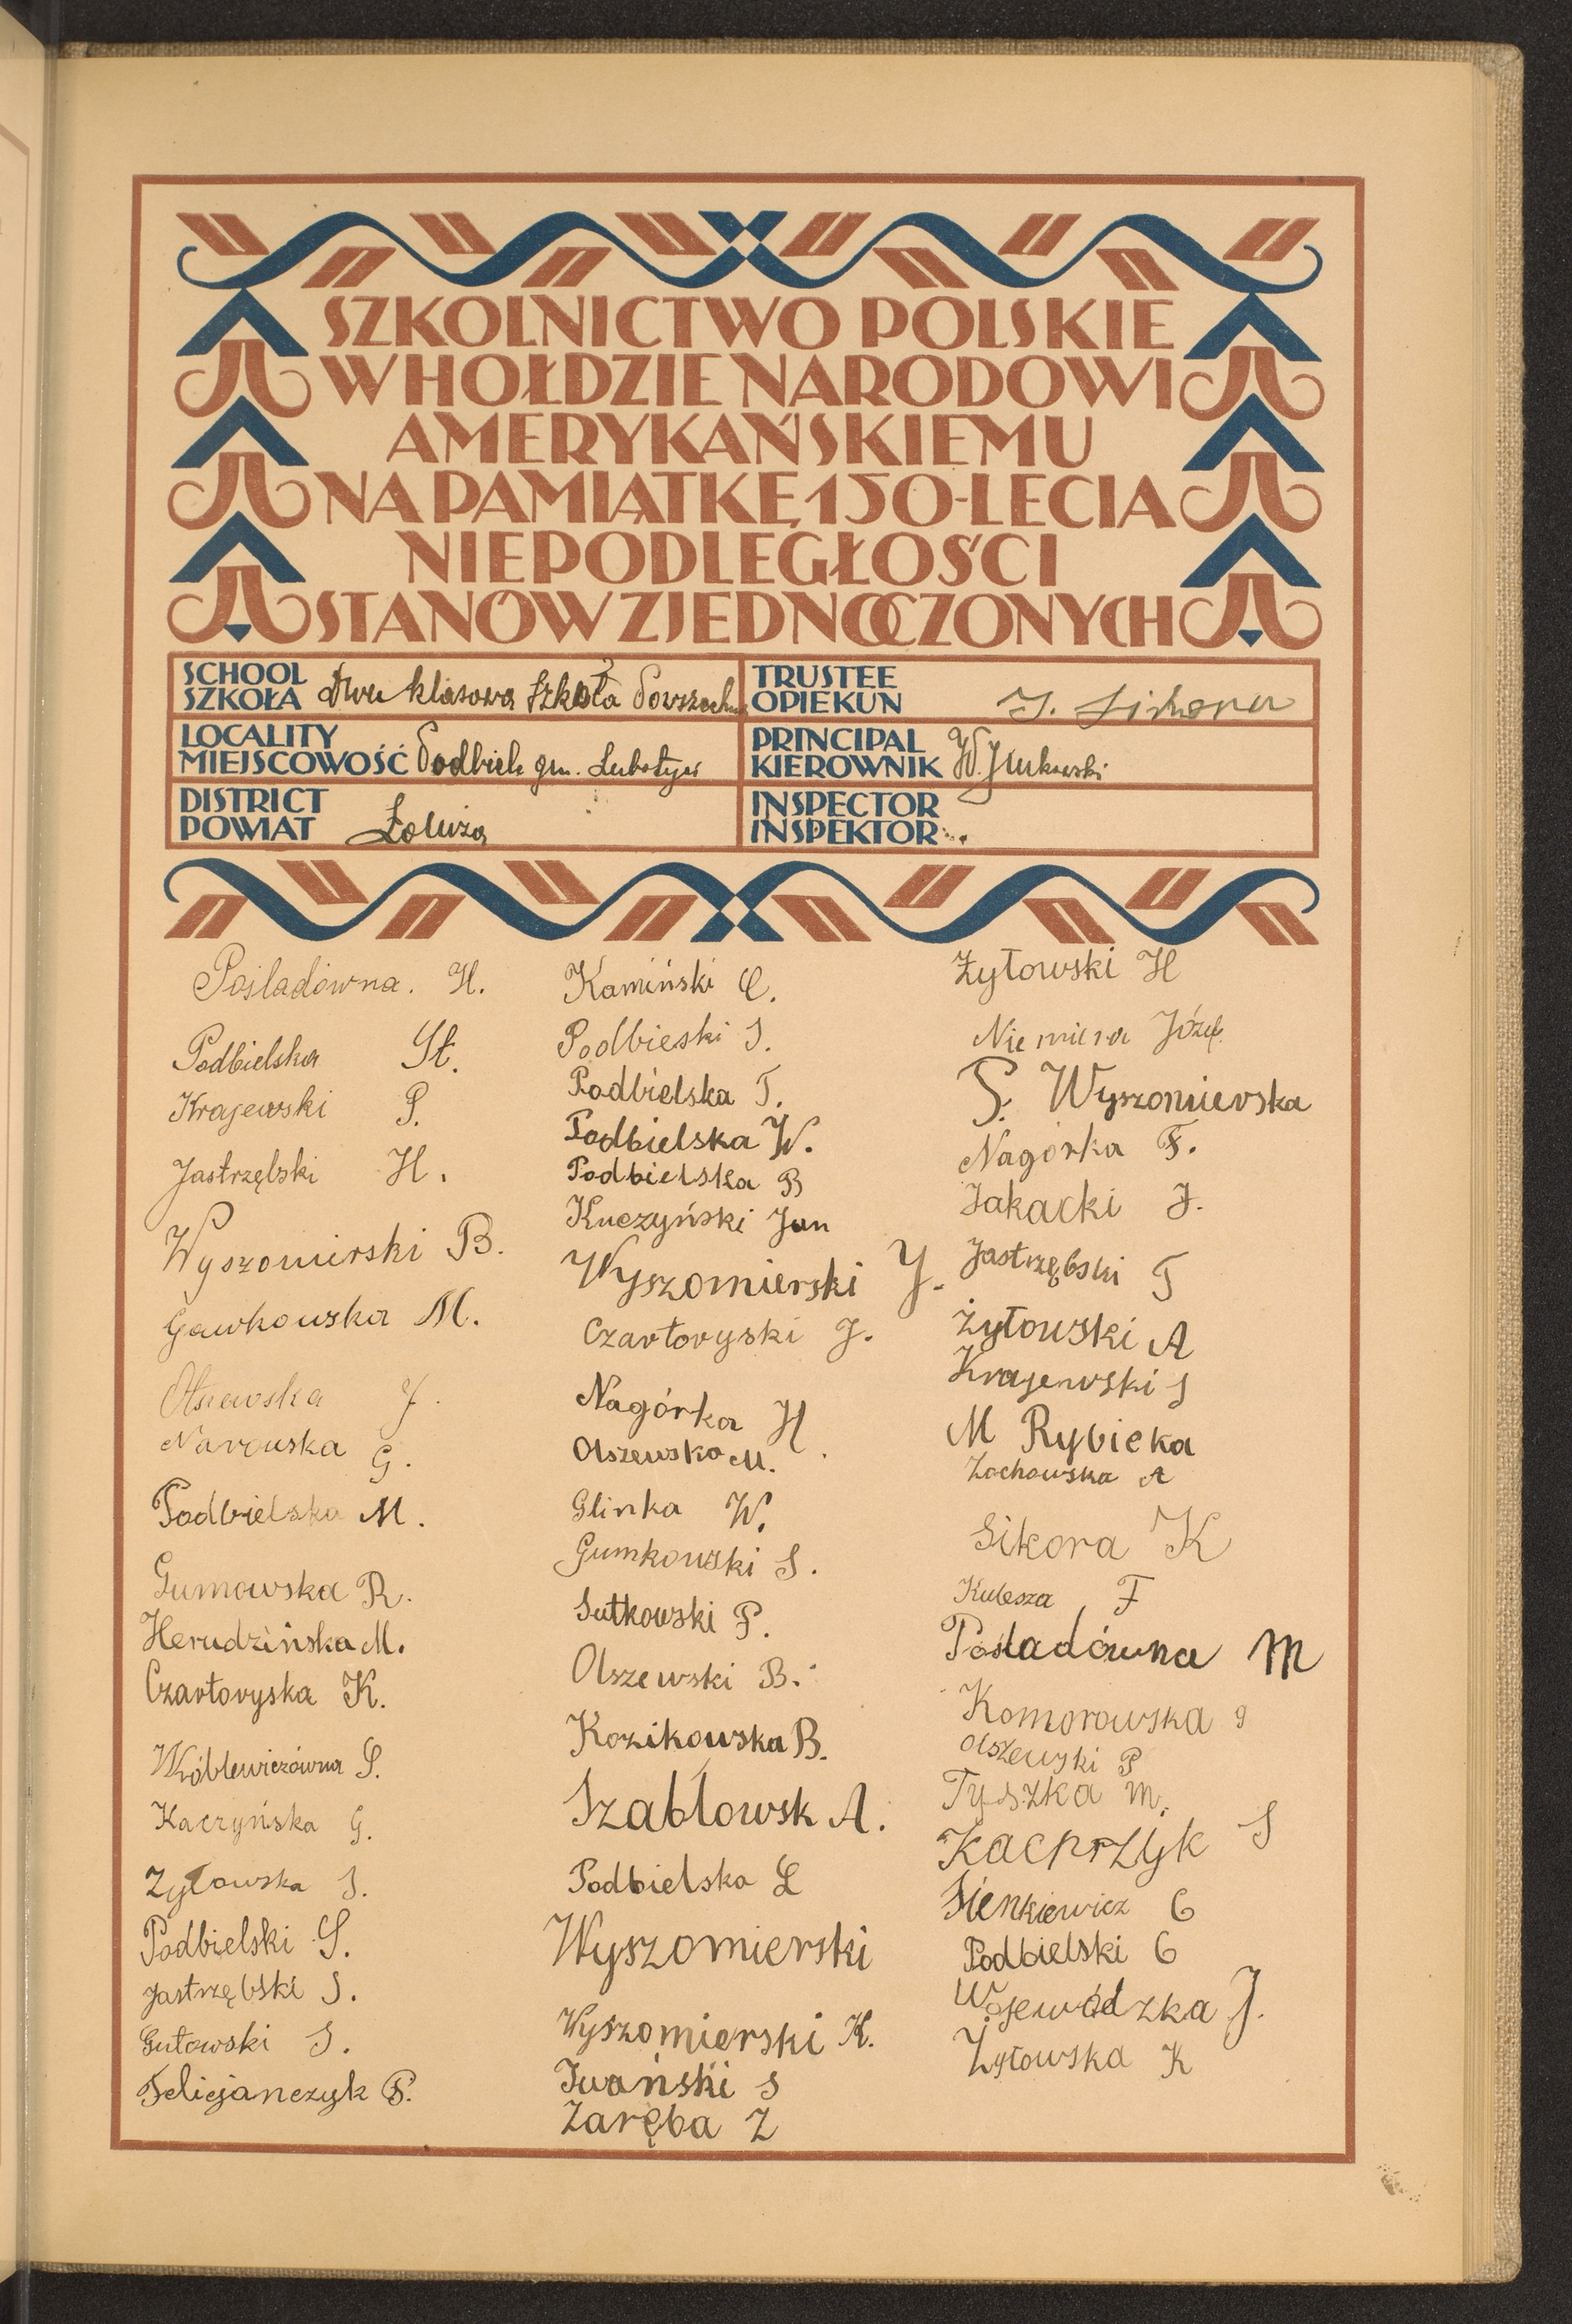 SZKOLNICTWO POLSKIE
W HOŁDZIE NARODOWI
AMERYKAŃSKIEMU
NA PAMIĄTKĘ 150-LECIA
NIEPODLEGŁOŚCI
STANÓW ZJEDNOCZONYCH
SCHOOL
SZKOŁA Dwu klasowa Szkoła Powszechna
LOCALITY
MIEJSCOWOŚĆ Podbiele gm. Lubotyń
DISTRICT
POWIAT Łomża
TRUSTEE
OPIEKUN J. Sikora
PRINCIPAL
KIEROWNIK W.
INSPECTOR
INSPEKTOR
Pośladówna. H.
Podbielska St.
Krajewski P.
Jastrzębski H.
Wyszomirski B.
Gawkowska M.
Olszewska J.
Narowska G.
Podbielska M.
Gumowska R.
Herudzińska M.
Czartoryska K.
Wróblewiczówna S.
Kaczyńska G.
Zyłowska S.
Podbielski S.
Jastrzębski S.
Gutowski S.
Felicjanczyk F.
Kamiński C.
Podbieski S.
Podbielska T.
Podbielska W.
Podbielska B
Kuczyński Jan
Wyszomierski J.
Czartoryski J.
Nagórka H.
Olszewska M.
Glinka W.
Gumkowski S.
Sutkowski P.
Olszewski B.
Kozikowska B.
Szabłowsk A.
Podbielska L
Wyszomierski
Wyszomierski K.
Iwański S
Zaręba Z
Żyłowski H
Niemiera Józef.
S. Wyszomierska
Nagórka F.
Zakacki J.
Jastrzębski T
Żyłowski A
Krajewski S
M Rybicka
Zochowska A
Sikora K
Kulesza F
Pośladówna M
Komorowska J
Olszewski P
Tyszka M.
Kacprzyk S
Sienkiewicz C
Podbielski C
Wojewódzka J.
Żyłowska K